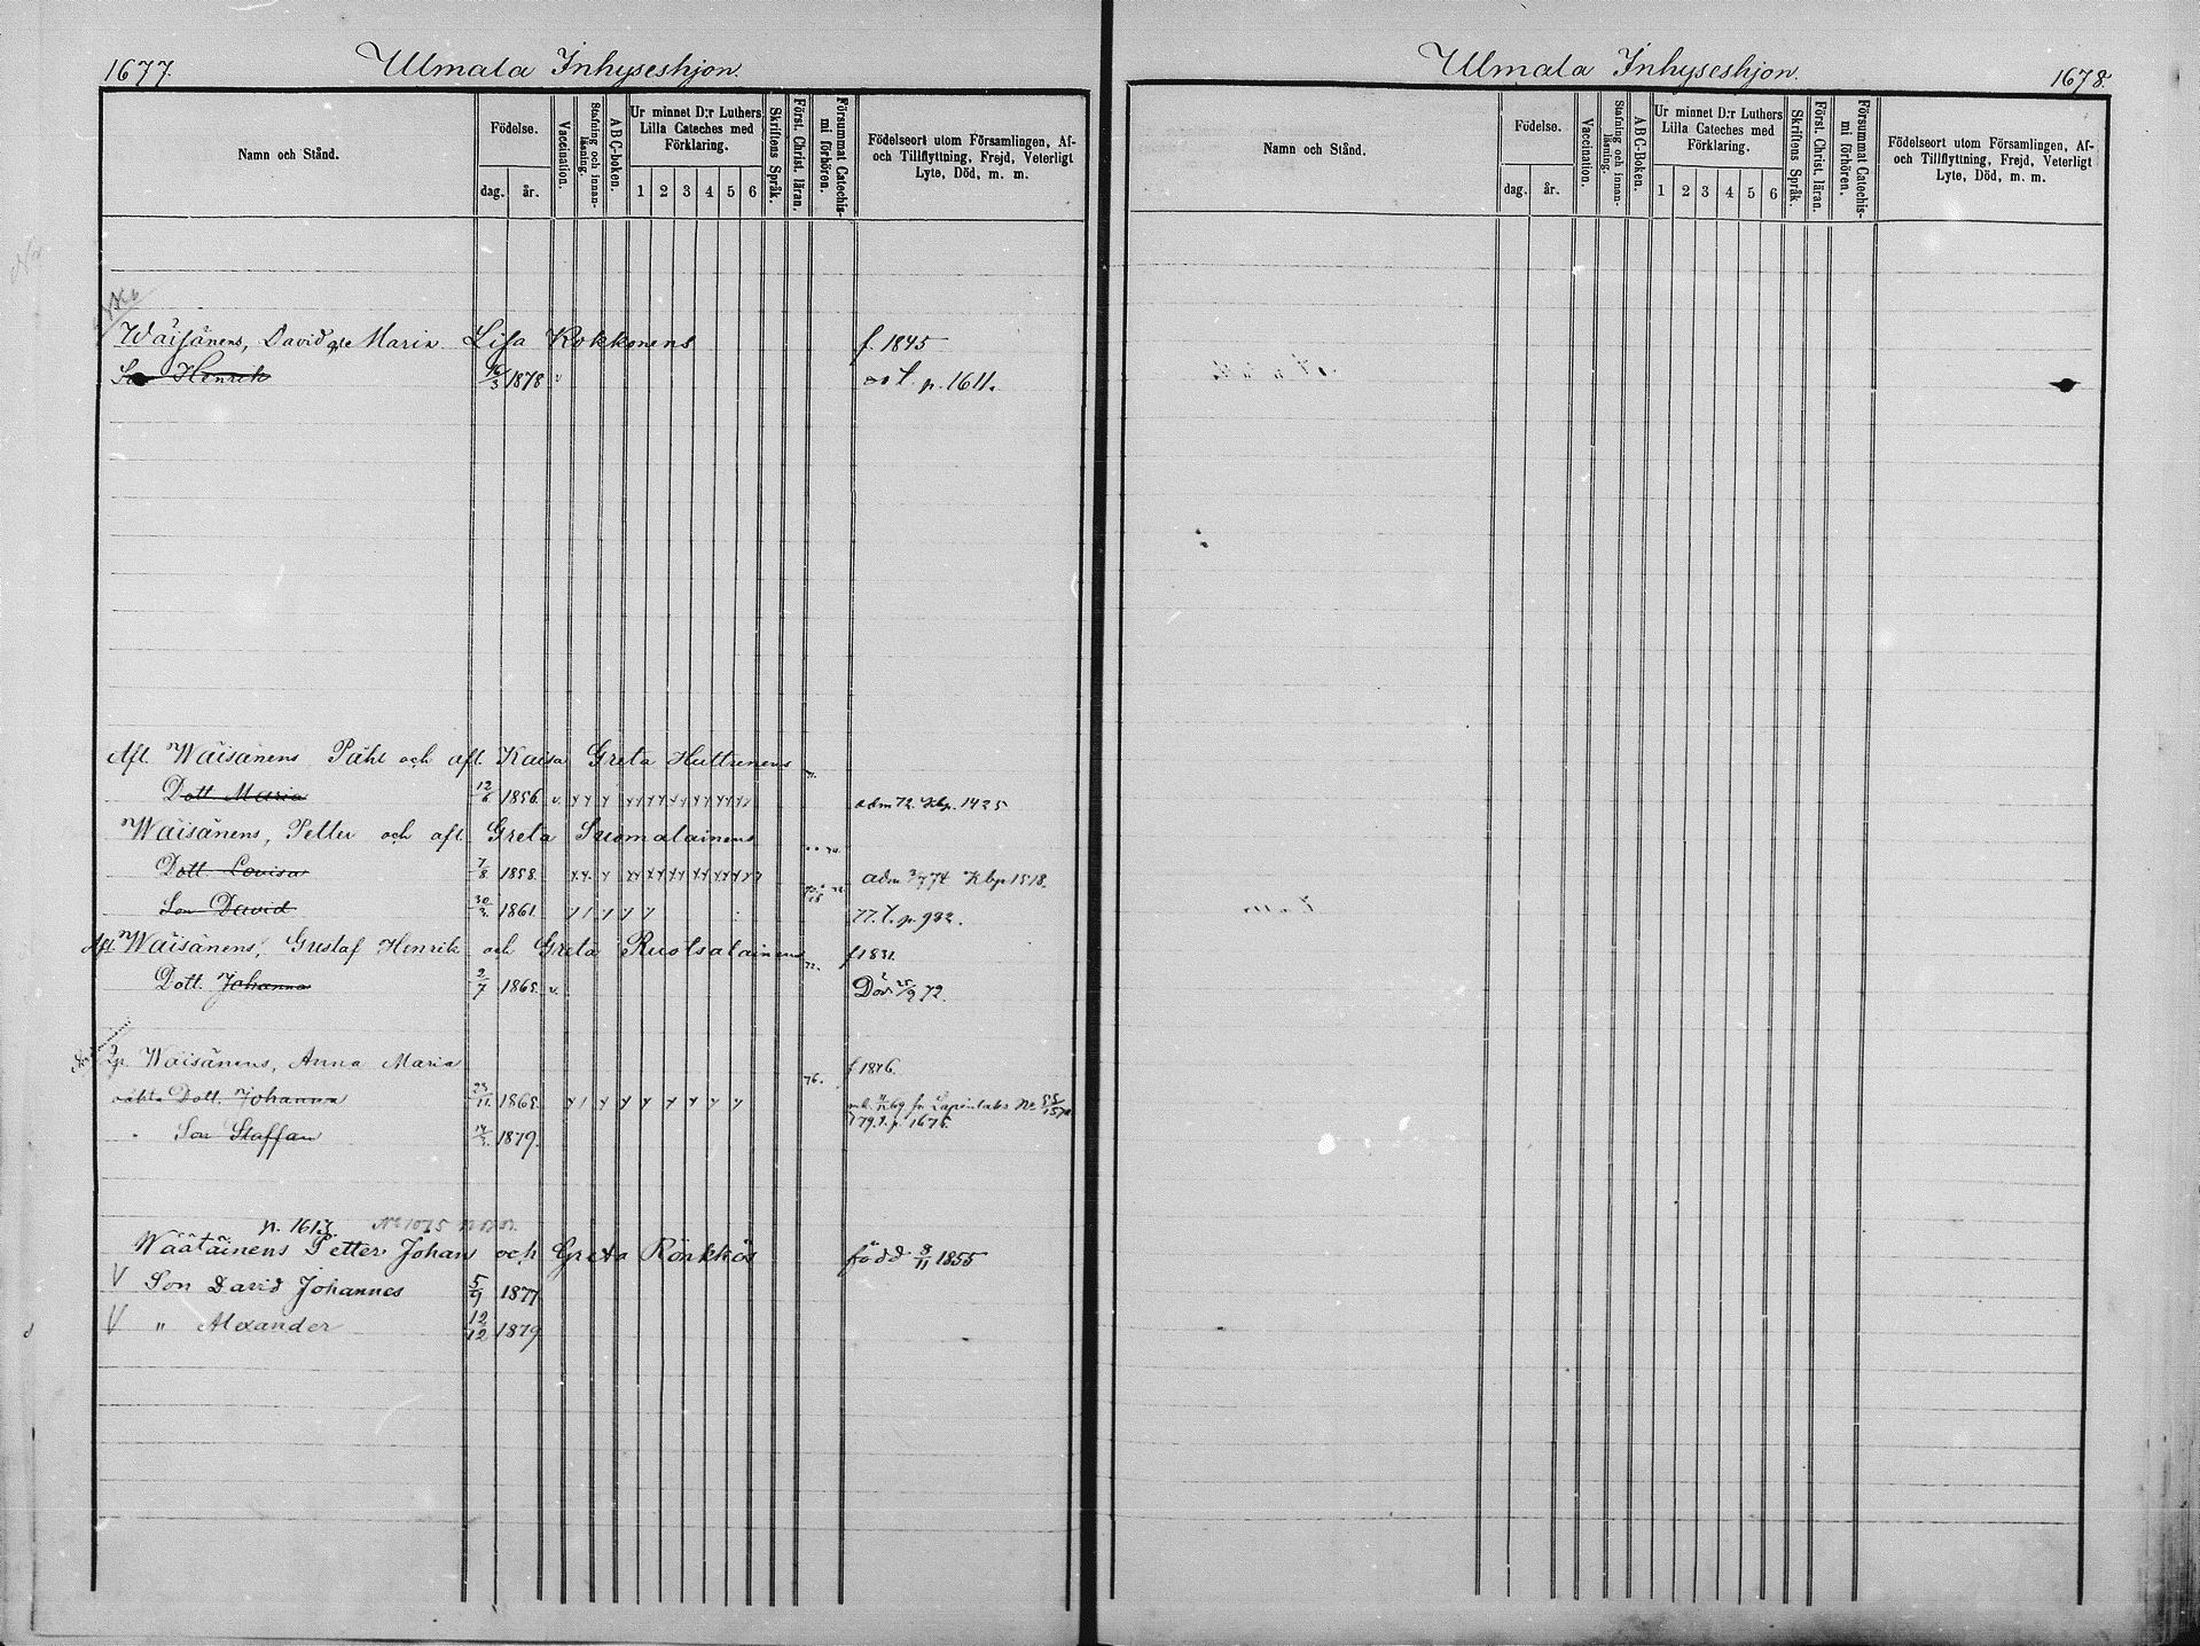 1677.
Ulmala Inhyseshjon.
Namn och Stånd.
Födelse.
dag. år.
Vaccination.
Stafning och innanläsning.
ABC-boken.
Ur minnet D:r Luthers Lilla Cateches med Förklaring.
1 2 3 4 5 6
Skriftens Språk.
Först. Christ. läran.
Försummat Catechismi förhören.
Födelseort utom Församlingen, Af- och Tillflyttning, Frejd, Veterligt Lyte, Död, m. m.
Wäisänens, David Maria Lisa Kokkonens f. 1845
Henrik 16/3 1878 v p. 1611.
Afl. Wäisänens Påhl och afl. Kaisa Greta Huttunens
Dott Maria 12/6 1856. v. adm 72. Kbp. 1425
Wäisänens, Petter och afl. Greta Suomalainens
Dott. Lovisa 7/8 1858. adm 3/7 74 Kbp 1518.
Son David 30/3 1861. 77. t. p. 932.
Afl. Wäisänens, Gustaf Henrik och Greta Ruotsalainens f 1831.
Dott. Johanna 2/7 1865. v. Död 25/9 72.
Wäisänens, Anna Maria 76. f 1846.
oäkta Dott. Johanna 23/11 1868. fr Lapinlaks
79. t. p. 1675.
Son Staffan 14/3 1879.
p. 1613
Väätäinens Petter Johan och Greta Rönkkös född 8/11 1855
V Son David Johannes 5/9 1877
V " Alexander 12/12 1879
Ulmala Inhyseshjon.
1678.
Namn och Stånd.
Födelse.
dag. år.
Vaccination.
Stafning och innanläsning.
ABC-Boken.
Ur minnet D:r Luthers Lilla Cateches med Förklaring.
1 2 3 4 5 6
Skriftens Språk.
Först. Christ. läran.
Försummat Catechismi förhören.
Födelseort utom Församlingen, Af- och Tillflyttning, Frejd, Veterligt Lyte, Död, m. m.